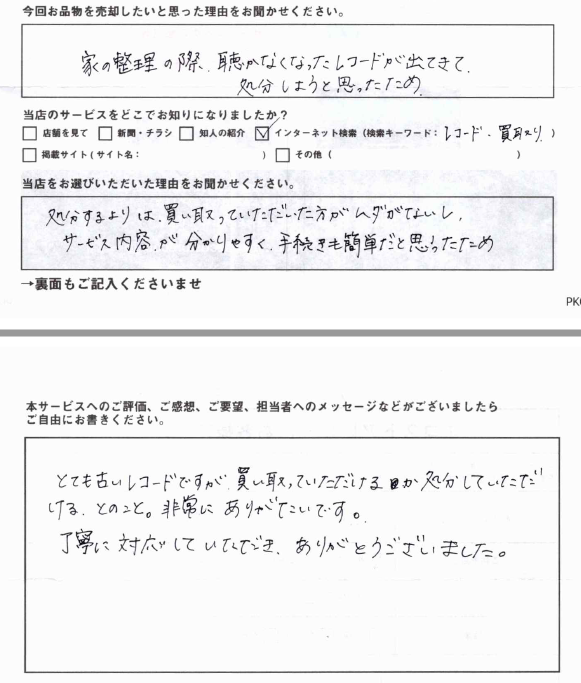 今回お品物を売却したいと思った理由をお聞かせください。
家の整理の際、聴かなくなったレコードが出てきて、
処分しようと思ったため
当店のサービスをどこでお知りになりましたか？
□ 店舗を見て □ 新聞・チラシ □ 知人の紹介 ☑ インターネット検索（検索キーワード：レコード・買取り）
□ 掲載サイト（サイト名： ） □ その他（ ）
当店をお選びいただいた理由をお聞かせください。
処分するよりは、買い取っていただいた方がムダがないし、
サービス内容が分かりやすく、手続きも簡単だと思ったため
→裏面もご記入くださいませ
PK
本サービスへのご評価、ご感想、ご要望、担当者へのメッセージなどがございましたら
ご自由にお書きください。
とても古いレコードですが、買い取っていただけるか処分していただ
ける、とのこと。非常にありがたいです。
丁寧に対応していただき、ありがとうございました。